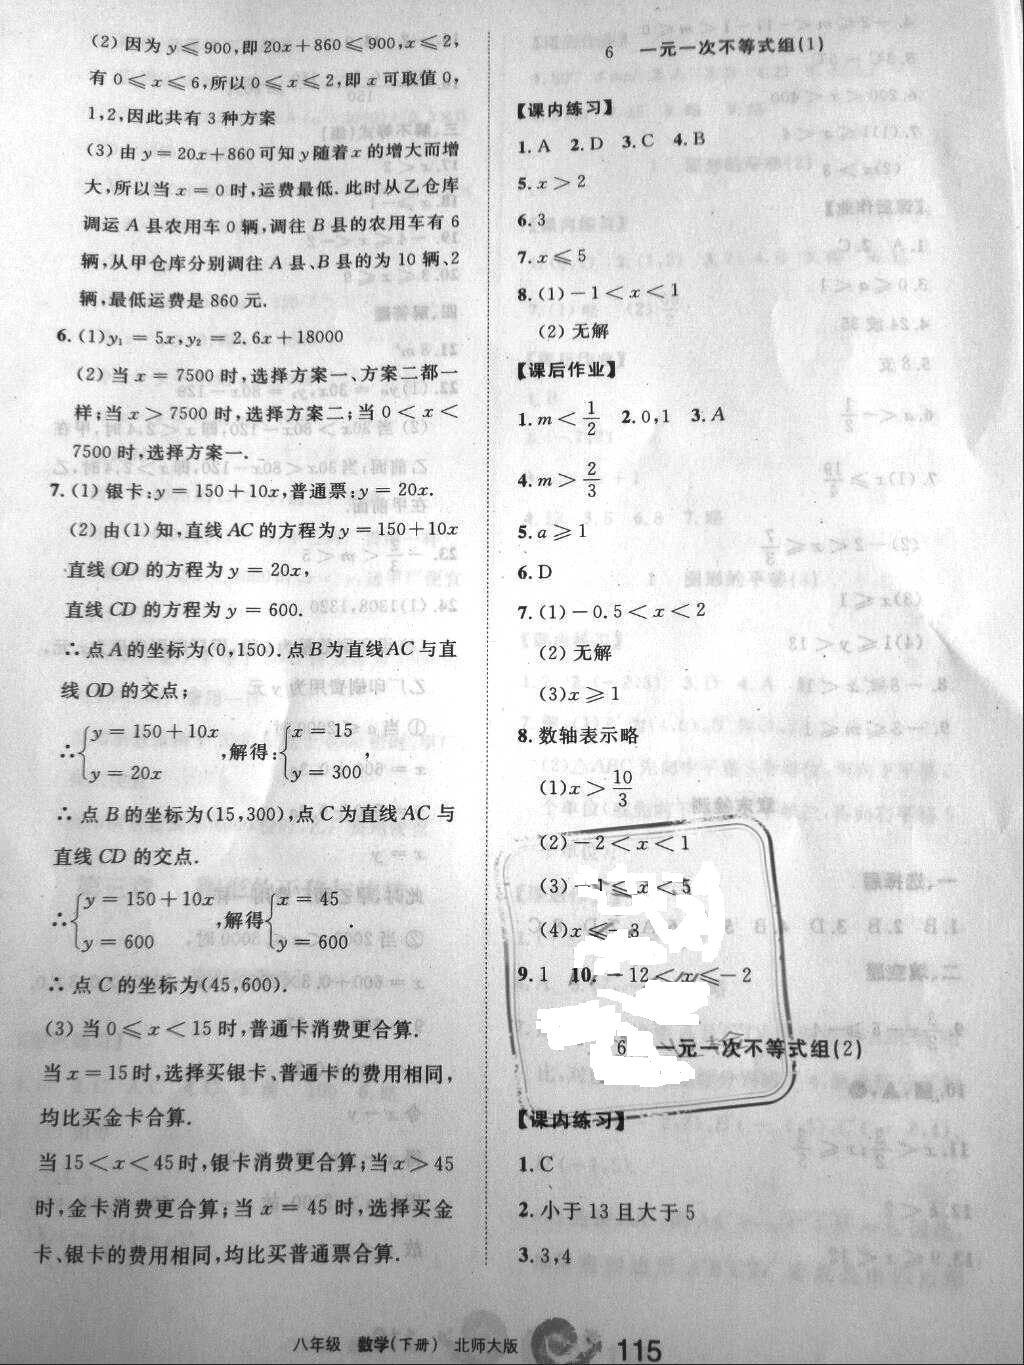 (2)因为y≤900,即20x+860≤900,x≤2,
有0≤x≤6,所以0≤x≤2,即x可取值0,
1,2,因此共有3种方案
(3)由y=20x+860可知y随着x的增大而增
大,所以当x=0时,运费最低.此时从乙仓库
调运A县农用车0辆,调往B县的农用车有6
辆,从甲仓库分别调往A县、B县的为10辆、2
辆,最低运费是860元.
6.(1)y₁=5x,y₂=2.6x+18000
(2)当x=7500时,选择方案一、方案二都一
样;当x>7500时,选择方案二;当0<x<
7500时,选择方案一.
7.(1)银卡:y=150+10x,普通票:y=20x.
(2)由(1)知,直线AC的方程为y=150+10x
直线OD的方程为y=20x,
直线CD的方程为y=600.
∴点A的坐标为(0,150).点B为直线AC与直
线OD的交点;
∴{y=150+10x y=20x,解得:{x=15 y=300,
∴点B的坐标为(15,300),点C为直线AC与
直线CD的交点.
∴{y=150+10x y=600,解得{x=45 y=600.
∴点C的坐标为(45,600).
(3)当0≤x<15时,普通卡消费更合算.
当x=15时,选择买银卡、普通卡的费用相同,
均比买金卡合算.
当15<x<45时,银卡消费更合算;当x>45
时,金卡消费更合算;当x=45时,选择买金
卡、银卡的费用相同,均比买普通票合算.
6 一元一次不等式组(1)
【课内练习】
1.A 2.D 3.C 4.B
5.x>2
6.3
7.x≤5
8.(1)-1<x<1
(2)无解
【课后作业】
1.m<1/2 2.0,1 3.A
4.m>2/3
5.a≥1
6.D
7.(1)-0.5<x<2
(2)无解
(3)x≥1
8.数轴表示略
(1)x>10/3
(2)-2<x<1
(3)-1≤x<5
(4)x≤-3
9.1 10.-12<x≤-2
6 一元一次不等式组(2)
【课内练习】
1.C
2.小于13且大于5
3.3,4
八年级 数学(下册) 北师大版 115